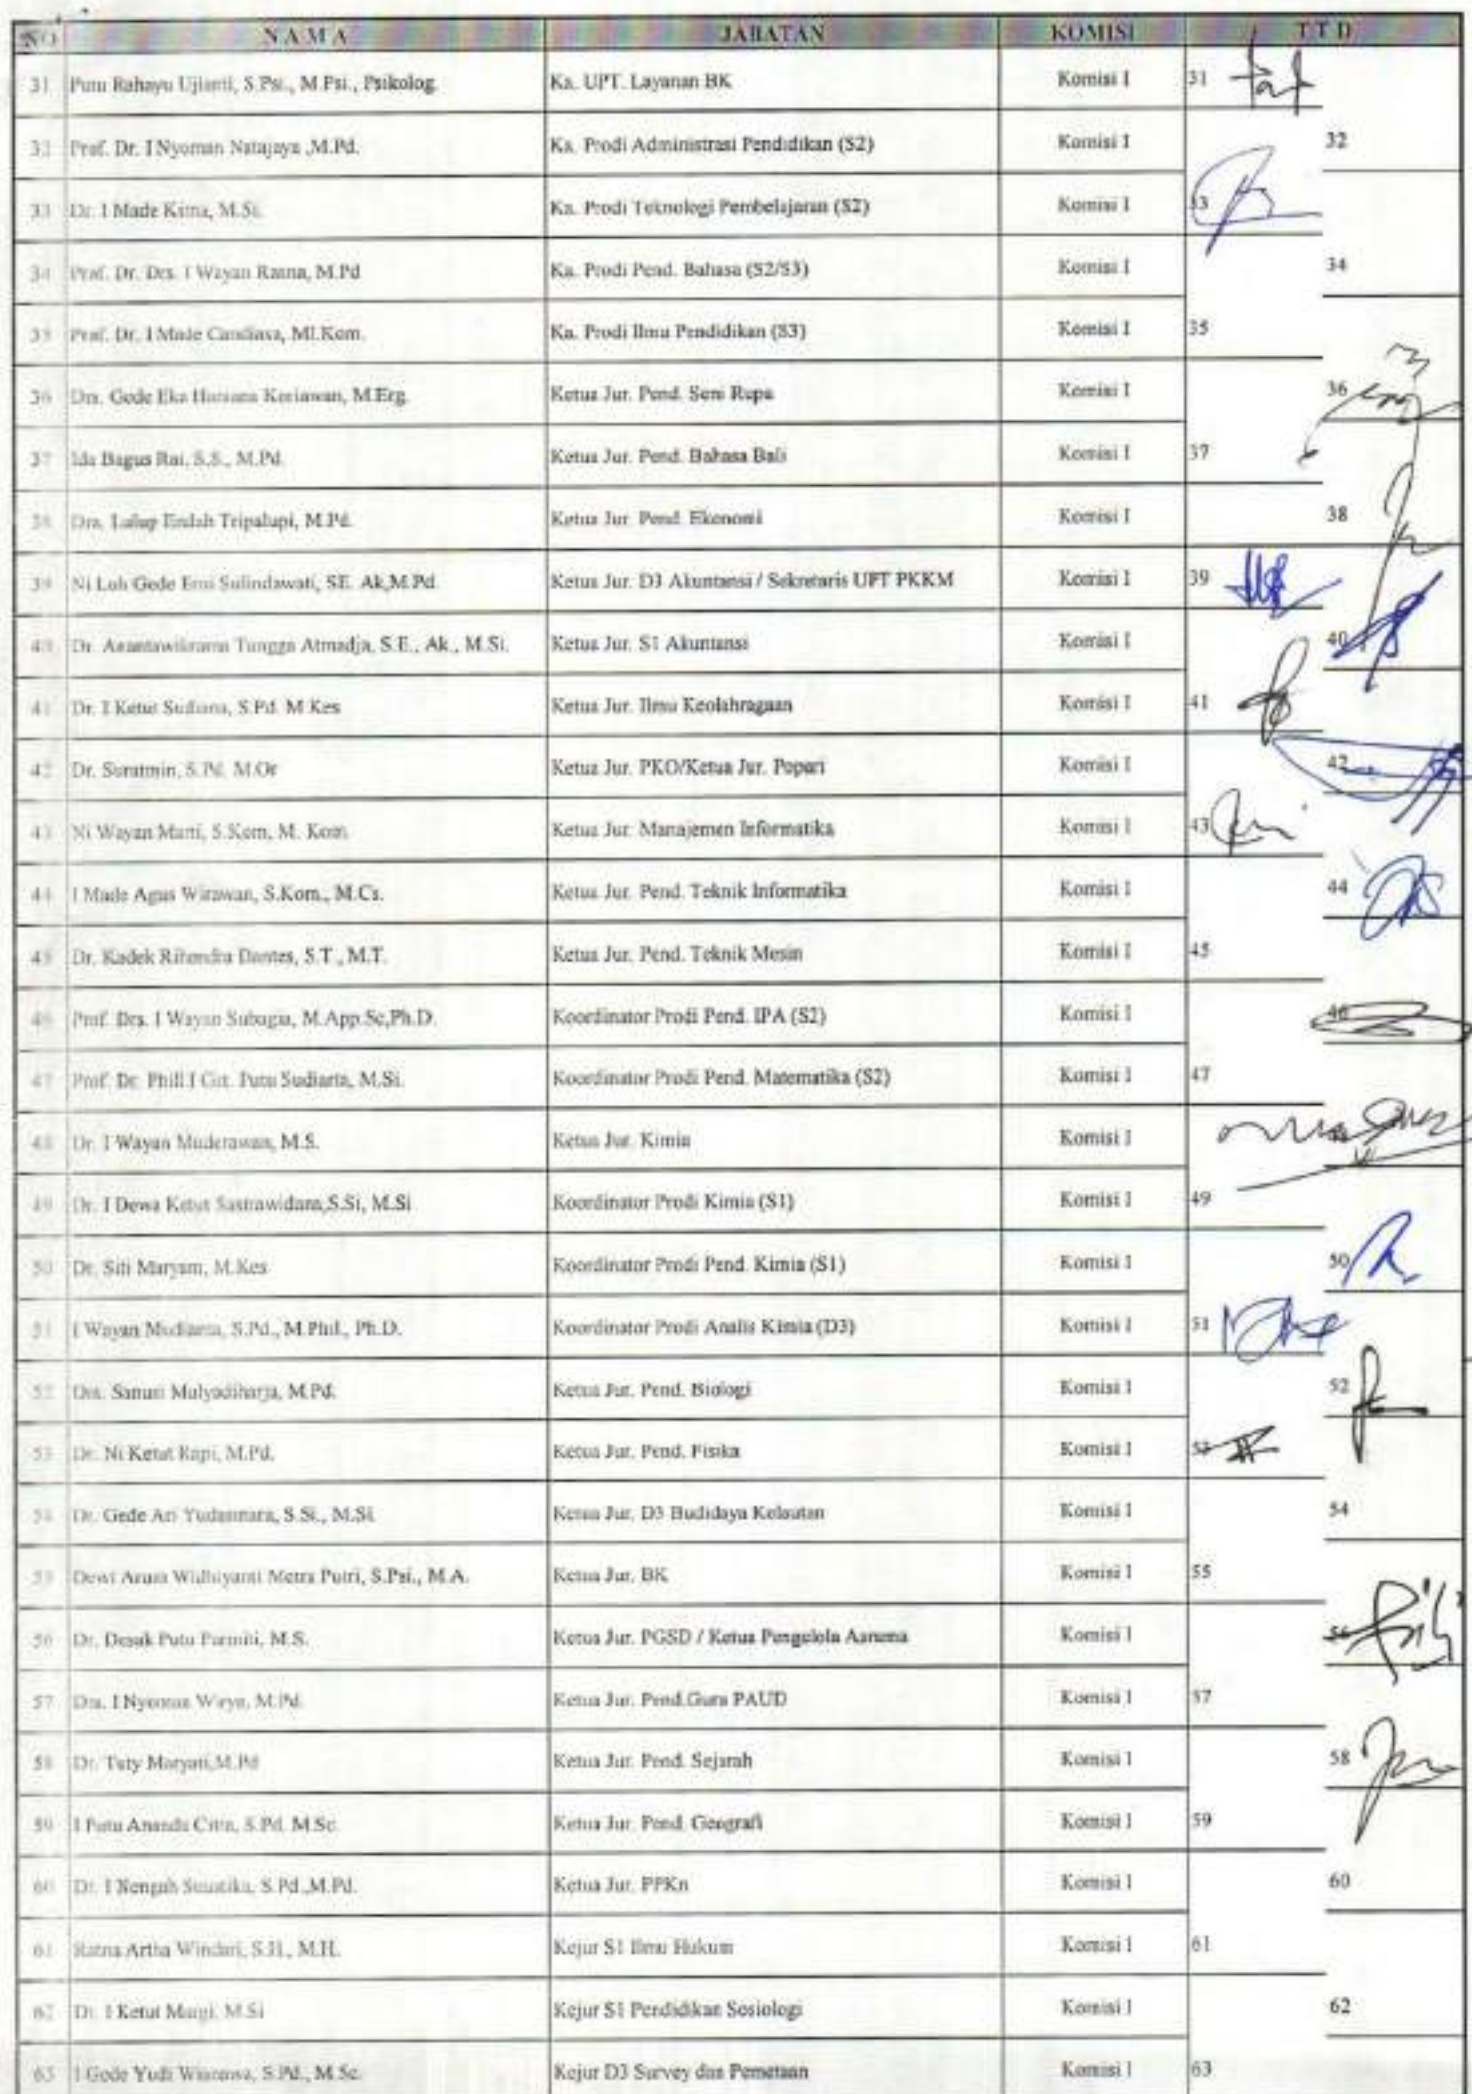 NO NAMA JABATAN KOMISI TTD
31 Putu Rahayu Ujianti, S.Psi., M.Psi., Psikolog. Ka. UPT. Layanan BK Komisi I 31
32 Prof. Dr. I Nyoman Natajaya ,M.Pd. Ka. Prodi Administrasi Pendidikan (S2) Komisi I 32
33 Dr. I Made Kirna, M.Si. Ka. Prodi Teknologi Pembelajaran (S2) Komisi I 33
34 Prof. Dr. Drs. I Wayan Rasna, M.Pd Ka. Prodi Pend. Bahasa (S2/S3) Komisi I 34
35 Prof. Dr. I Made Candiasa, MI.Kom. Ka. Prodi Ilmu Pendidikan (S3) Komisi I 35
36 Drs. Gede Eka Harsana Koriawan, M.Erg. Ketua Jur. Pend. Seni Rupa Komisi I 36
37 Ida Bagus Rai, S.S., M.Pd. Ketua Jur. Pend. Bahasa Bali Komisi I 37
38 Dra. Lulup Endah Tripalupi, M.Pd. Ketua Jur. Pend. Ekonomi Komisi I 38
39 Ni Luh Gede Erni Sulindawati, SE. Ak,M.Pd. Ketua Jur. D3 Akuntansi / Sekretaris UPT PKKM Komisi I 39
40 Dr. Anantawikrama Tungga Atmadja, S.E., Ak., M.Si. Ketua Jur. S1 Akuntansi Komisi I 40
41 Dr. I Ketut Sudiana, S.Pd. M.Kes Ketua Jur. Ilmu Keolahragaan Komisi I 41
42 Dr. Suratmin, S.Pd, M.Or Ketua Jur. PKO/Ketua Jur. Popari Komisi I 42
43 Ni Wayan Marti, S.Kom, M. Kom Ketua Jur. Manajemen Informatika Komisi I 43
44 I Made Agus Wirawan, S.Kom., M.Cs. Ketua Jur. Pend. Teknik Informatika Komisi I 44
45 Dr. Kadek Rihendra Dantes, S.T., M.T. Ketua Jur. Pend. Teknik Mesin Komisi I 45
46 Prof. Drs. I Wayan Subagia, M.App.Sc,Ph.D. Koordinator Prodi Pend. IPA (S2) Komisi I 46
47 Prof. Dr. Phill I Gst. Putu Sudiarta, M.Si. Koordinator Prodi Pend. Matematika (S2) Komisi I 47
48 Dr. I Wayan Muderawan, M.S. Ketua Jur. Kimia Komisi I
49 Dr. I Dewa Ketut Sastrawidana,S.Si, M.Si Koordinator Prodi Kimia (S1) Komisi I 49
50 Dr. Siti Maryam, M.Kes Koordinator Prodi Pend. Kimia (S1) Komisi I 50
51 I Wayan Mudianta, S.Pd., M.Phil., Ph.D. Koordinator Prodi Analis Kimia (D3) Komisi I 51
52 Drs. Sanusi Mulyadiharja, M.Pd. Ketua Jur. Pend. Biologi Komisi I 52
53 Dr. Ni Ketut Rapi, M.Pd. Ketua Jur. Pend. Fisika Komisi I 53
54 Dr. Gede Ari Yudasmara, S.Si., M.Si. Ketua Jur. D3 Budidaya Kelautan Komisi I 54
55 Dewi Arum Widhiyanti Metra Putri, S.Psi., M.A. Ketua Jur. BK Komisi I 55
56 Dr. Desak Putu Parmiti, M.S. Ketua Jur. PGSD / Ketua Pengelola Asrama Komisi I 56
57 Dra. I Nyoman Wirya, M.Pd. Ketua Jur. Pend.Guru PAUD Komisi I 57
58 Dr. Tuty Maryati,M.Pd Ketua Jur. Pend. Sejarah Komisi I 58
59 I Putu Ananda Citra, S.Pd. M.Sc. Ketua Jur. Pend. Geografi Komisi I 59
60 Dr. I Nengah Suastika, S.Pd.,M.Pd. Ketua Jur. PPKn Komisi I 60
61 Ratna Artha Windari, S.H., M.H. Kejur S1 Ilmu Hukum Komisi I 61
62 Dr. I Ketut Margi, M.Si Kejur S1 Pendidikan Sosiologi Komisi I 62
63 I Gede Yudi Wisnawa, S.Pd., M.Sc. Kejur D3 Survey dan Pemetaan Komisi I 63